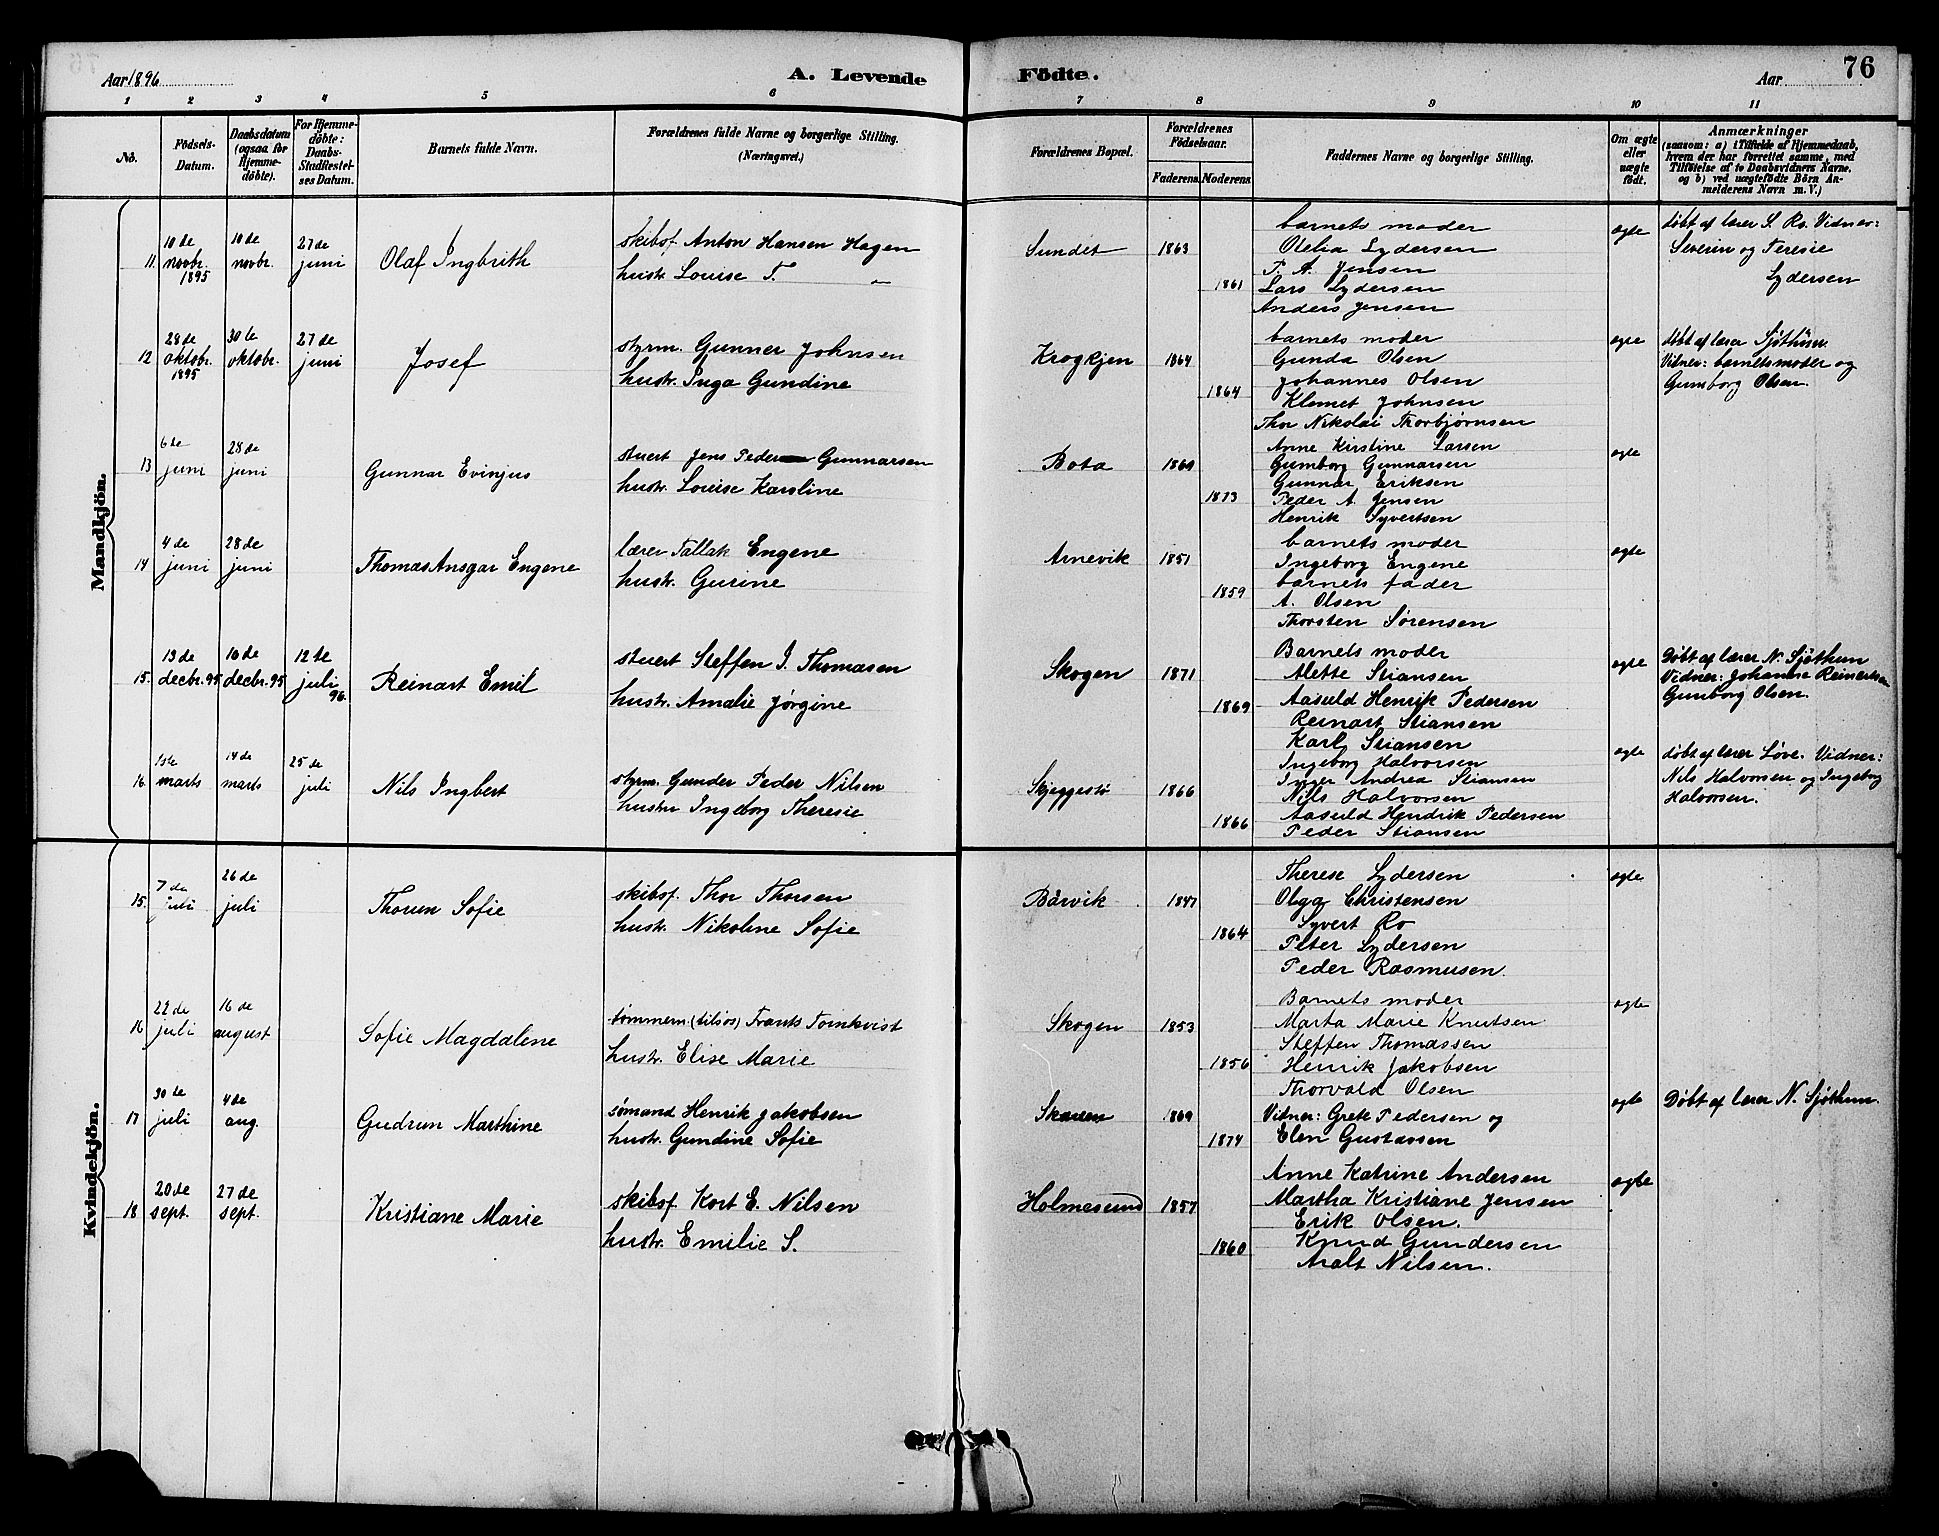 Aar 1896 A. Levende Födte. Aar 76
1 2 3 4 5 6 7 8 9 10 11
No.
Födsels-Datum.
Daabsdatum (ogsaa for Hjemme-döbte).
For Hjemme-döbte: Daabs-Stadfæstel-ses Datum.
Barnets fulde Navn.
Forældrenes fulde Navne og borgerlige Stilling.
(Næringsvei.)
Forældrenes Bopæl.
Forældrenes Födselsaar.
Faderens. Moderens.
Faddernes Navne og borgerlige Stilling.
Om ægte eller uægte födt.
Anmærkninger
(saasom: a) i Tilfælde af Hjemmedaab,
hvem der har forrettet samme, med
Tilföielse af to Daabsvidners Navne,
og b) ved uægtefödte Börn An-
melderens Navn m. V.)
Mandkjön.
11. 10de novbr. 1895 10de novbr. 27de juni
Olaf Ingbrith
skibsf. Anton Hansen Hagen
hustr. Louise T. "
Sundet 1863 1861
barnets moder
Otelia Lydersen
P. A. Jensen
Lars Lydersen
Anders Jensen
ægte
døbt af lærer S. Ro. Vidner:
Severin og Teresie
Lydersen
12 28de oktobr. 1895 30te oktobr. 27de juni
Josef
styrm. Gunner Johnsen
hustr. Inga Gundine
Krogkjen 1864 1864
barnets moder
Gunda Olsen
Johannes Olsen
Klemet Johnsen
Thor Nikolai Thorbjørnsen
ægte
døbt af lærer Sjøthun.
Vidner: barnets moder og
Gumborg Olsen.
13 6te juni 28de juni
Gunnar Evinjus
stuert Jens Peder Gunnarsen
hustr. Louise Karoline
Bota 1860 1873
Anne Kirstine Larsen
Gumborg Gunnarsen
Gunnar Eriksen
Peder A. Jensen
Henrik Syvertsen
ægte
14 4de juni 28de juni
Thomas Ansgar Engene
lærer Tallak Engene
hustr. Gurine
Arnevik 1851 1859
barnets moder
Ingeborg Engene
barnets fader
A. Olsen
Thorsten Sørensen
ægte
15. 13de decbr. 95 16de decbr. 95 12te juli 96.
Reinart Emil
stuert Steffen J. Thomasen
hustr. Amalie Jørgine
Skogen 1871 1869
Barnets moder
Alette Stiansen
Aasuld Henrik Pedersen
Reinart Stiansen
Karl Stiansen
ægte
Døbt af lærer N. Sjøthun
Vidner: Johanne Reinertsen
Gumborg Olsen.
16. 1ste marts 14de marts 25de juli
Nils Ingbert
styrm. Gunder Peder Nilsen
hustru Ingeborg Theresie
Skjeggestø 1866 1866
Ingeborg Halvorsen
Inger Andrea Stiansen
Nils Halvorsen
Aasuld Hendrik Pedersen
Peder Stiansen
ægte
døbt af lærer Løve. Vidner:
Nils Halvorsen og Ingeborg
Halvorsen.
Kvindekjön.
15. 7de juli 26de juli
Thorun Sofie
skibsf. Thor Thorsen
hustr. Nikoline Sofie
Bårvik 1847 1864
Therese Lydersen
Olga Christensen
Syvert Ro
Peter Lydersen
Peder Rasmusen.
ægte
16 22de juli 16de august
Sofie Magdalene
tømmerm. Frants Tornkvist
hustr. Elise Marie
Skogen 1853 1856
Barnets moder
Marta Marie Knutsen
Steffen Thomassen
Henrik Jakobsen
Thorvald Olsen
ægte
17 30te juli 4de aug.
Gudrun Marthine
sømand Henrik Jakobsen
hustr. Gundine Sofie
1869 1874
Vitner: Grete Pedersen og
Elen Gustavsen
ægte
Døbt af lærer N. Sjøthun.
18 20de sept. 27de sept.
Kristiane Marie
skibsf. Kort E. Nilsen
hustr. Emilie S.
Holmesund 1857 1860
Anne Katrine Andersen
Martha Kristiane Jensen
Erik Olsen.
Knud Gundersen
Aralt Nilsen.
ægte